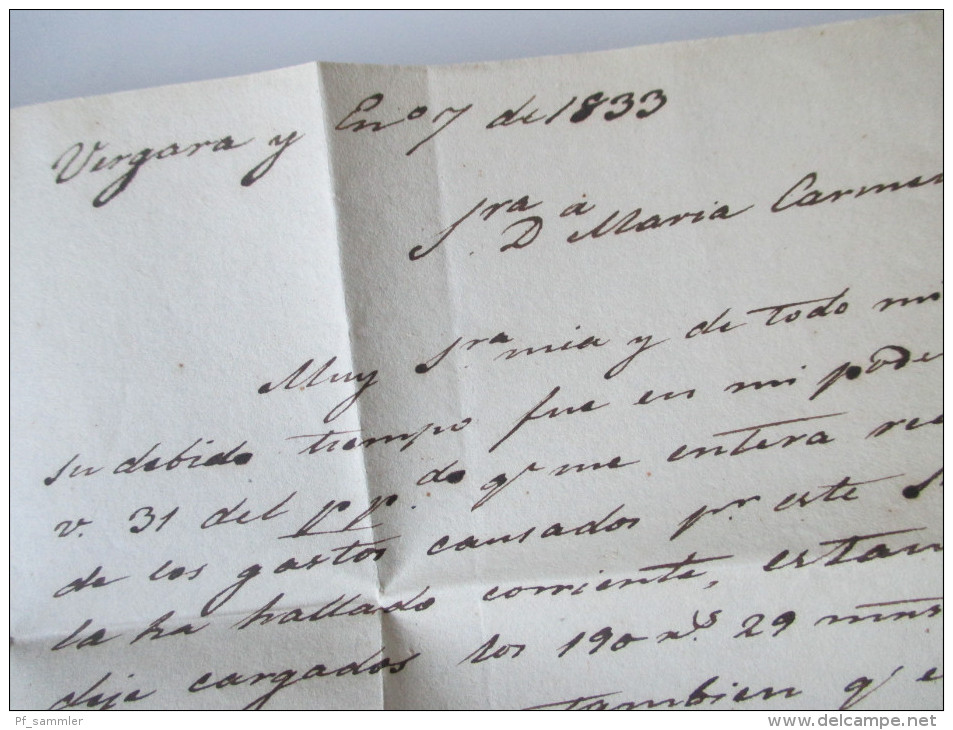 Vergara y En.º 7 de 1833
S.ra D.ª Maria Carmen
Muy S.ra mia y de todo mi
su debido tiempo fue en mi pode
v. 31 del pp.do q.e me entera rec
de los gastos causados p.r este S
la ha hallado corriente, estan
deje cargados los 190 r.s 29 mrns
tambien q.e e
Pf_sammler
www.delcampe.net